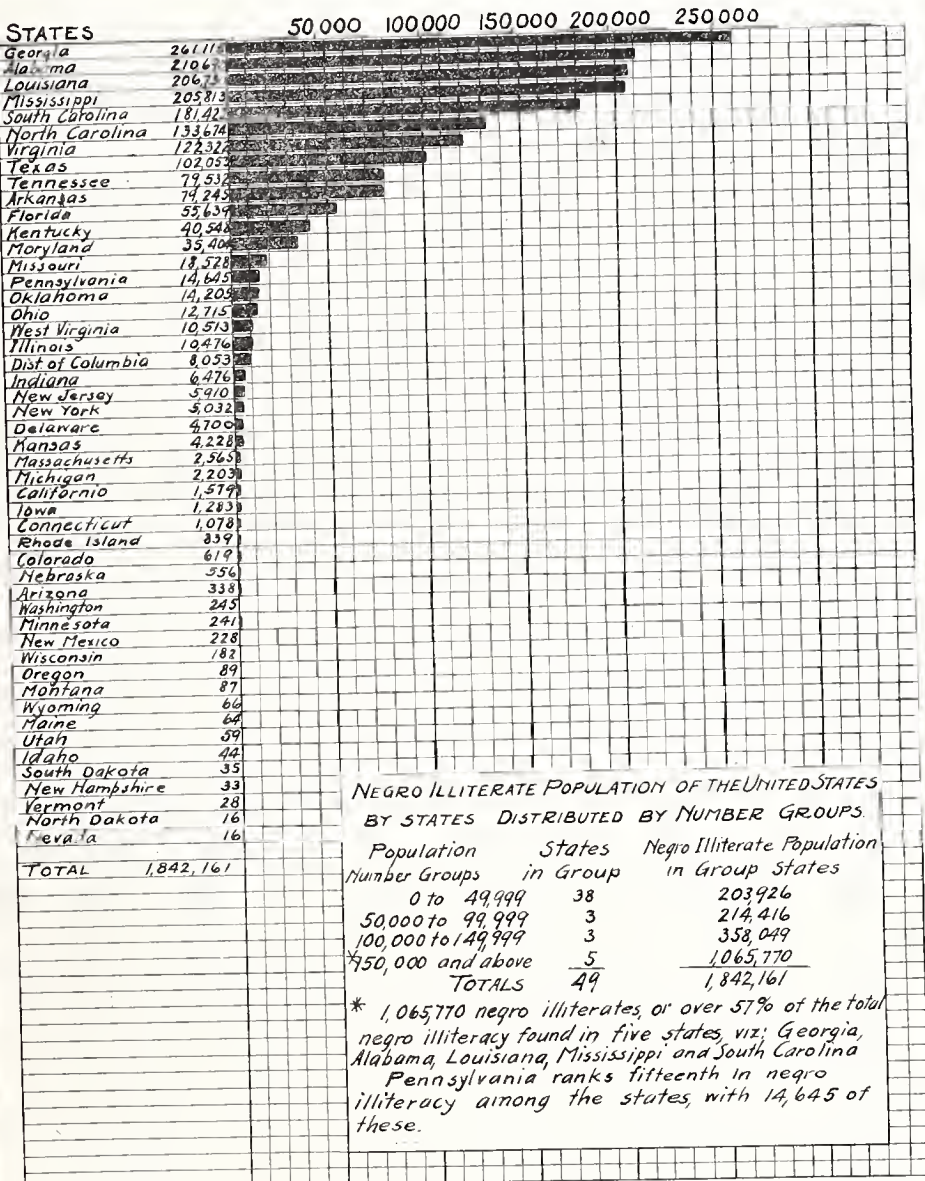 50000 100000 150000 200000 250000
STATES
Georgia 261,115
Alabama 210,6
Louisiana 206,73
Mississippi 205,813
South Carolina 181,42
North Carolina 133,674
Virginia 122,322
Texas 102,053
Tennessee 79,532
Arkansas 79,245
Florida 55,639
Kentucky 40,548
Moryland 35,404
Missouri 18,528
Pennsylvania 14,645
Oklahoma 14,205
Ohio 12,715
West Virginia 10,513
Illinois 10,476
Dist of Columbia 8,053
Indiana 6,476
New Jersey 5,910
New York 5,032
Delaware 4,700
Kansas 4,228
Massachusetts 2,565
Michigan 2,203
Californio 1,579
Iowa 1,283
Connecticut 1,078
Rhode Island 839
Colorado 619
Nebraska 556
Arizona 338
Washington 245
Minnesota 241
New Mexico 228
Wisconsin 182
Oregon 89
Montana 87
Wyoming 66
Maine 64
Utah 59
Idaho 44
South Dakota 35
New Hampshire 33
Vermont 28
North Dakota 16
Nevada 16
TOTAL 1,842,161
NEGRO ILLITERATE POPULATION OF THE UNITED STATES
BY STATES DISTRIBUTED BY NUMBER GROUPS.
Population States Negro Illiterate Population
Number Groups in Group in Group States
0 to 49,999 38 203,926
50,000 to 99,999 3 214,416
100,000 to 149,999 3 358,049
*150,000 and above 5 1,065,770
TOTALS 49 1,842,161
* 1,065,770 negro illiterates, or over 57% of the total
negro illiteracy found in five states, viz; Georgia,
Alabama, Louisiana, Mississippi and South Carolina
Pennsylvania ranks fifteenth in negro
illiteracy among the states, with 14,645 of
these.